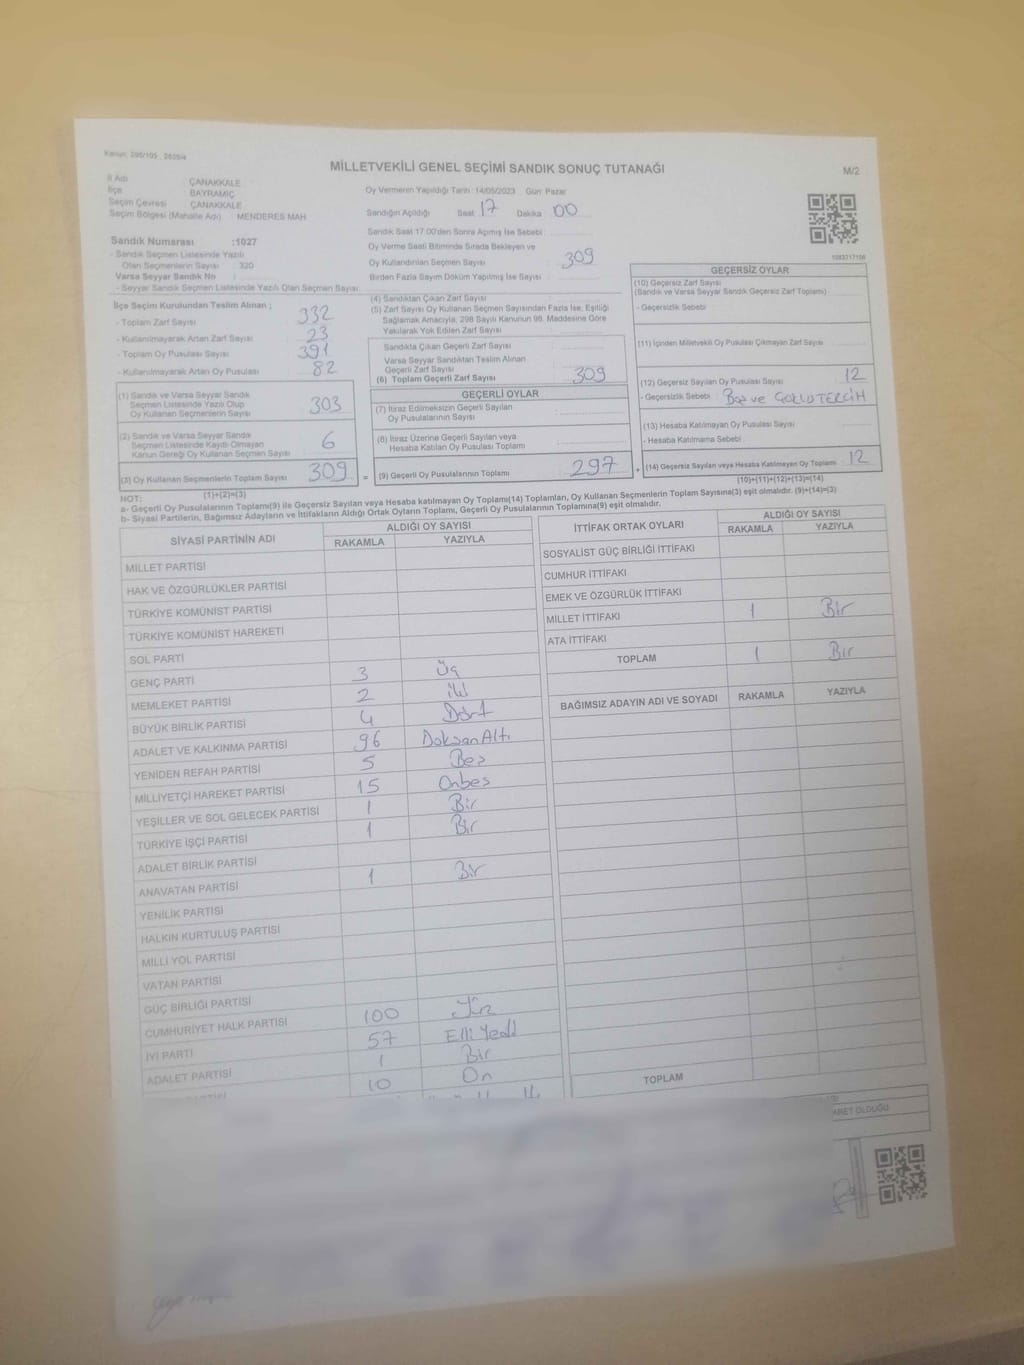 Kanun: 298/105 , 2839/4
MİLLETVEKİLİ GENEL SEÇİMİ SANDIK SONUÇ TUTANAĞI
M/2
İl Adı : ÇANAKKALE
İlçe : BAYRAMİÇ
Seçim Çevresi : ÇANAKKALE
Seçim Bölgesi (Mahalle Adı) : MENDERES MAH
Oy Vermenin Yapıldığı Tarih : 14/05/2023 Gün: Pazar
Sandığın Açıldığı Saat 17 Dakika 00
Sandık Saat 17:00'den Sonra Açılmış İse Sebebi :
Oy Verme Saati Bitiminde Sırada Bekleyen ve
Oy Kullandırılan Seçmen Sayısı : 309
Birden Fazla Sayım Döküm Yapılmış İse Sayısı :
Sandık Numarası :1027
- Sandık Seçmen Listesinde Yazılı
Olan Seçmenlerin Sayısı : 320
Varsa Seyyar Sandık No :
- Seyyar Sandık Seçmen Listesinde Yazılı Olan Seçmen Sayısı:
İlçe Seçim Kurulundan Teslim Alınan ;
- Toplam Zarf Sayısı : 332
- Kullanılmayarak Artan Zarf Sayısı : 23
- Toplam Oy Pusulası Sayısı : 391
- Kullanılmayarak Artan Oy Pusulası : 82
(1) Sandık ve Varsa Seyyar Sandık
Seçmen Listesinde Yazılı Olup
Oy Kullanan Seçmenlerin Sayısı 303
(2) Sandık ve Varsa Seyyar Sandık
Seçmen Listesinde Kayıtlı Olmayan
Kanun Gereği Oy Kullanan Seçmen Sayısı 6
(3) Oy Kullanan Seçmenlerin Toplam Sayısı 309
(1)+(2)=(3)
(4) Sandıktan Çıkan Zarf Sayısı :
(5) Zarf Sayısı Oy Kullanan Seçmen Sayısından Fazla İse, Eşitliği
Sağlamak Amacıyla, 298 Sayılı Kanunun 98. Maddesine Göre
Yakılarak Yok Edilen Zarf Sayısı :
Sandıkta Çıkan Geçerli Zarf Sayısı :
Varsa Seyyar Sandıktan Teslim Alınan
Geçerli Zarf Sayısı :
(6) Toplam Geçerli Zarf Sayısı : 309
GEÇERLİ OYLAR
(7) İtiraz Edilmeksizin Geçerli Sayılan
Oy Pusulalarının Sayısı :
(8) İtiraz Üzerine Geçerli Sayılan veya
Hesaba Katılan Oy Pusulası Toplamı :
= (9) Geçerli Oy Pusulalarının Toplamı : 297
GEÇERSİZ OYLAR
(10) Geçersiz Zarf Sayısı
(Sandık ve Varsa Seyyar Sandık Geçersiz Zarf Toplamı) :
- Geçersizlik Sebebi :
(11) İçinden Milletvekili Oy Pusulası Çıkmayan Zarf Sayısı :
(12) Geçersiz Sayılan Oy Pusulası Sayısı : 12
- Geçersizlik Sebebi : Boş ve ÇOKLU TERCİH
(13) Hesaba Katılmayan Oy Pusulası Sayısı :
- Hesaba Katılmama Sebebi :
+ (14) Geçersiz Sayılan veya Hesaba Katılmayan Oy Toplamı : 12
(10)+(11)+(12)+(13)=(14)
NOT:
a- Geçerli Oy Pusulalarının Toplamı(9) ile Geçersiz Sayılan veya Hesaba katılmayan Oy Toplamı(14) Toplamları, Oy Kullanan Seçmenlerin Toplam Sayısına(3) eşit olmalıdır. (9)+(14)=(3)
b- Siyasi Partilerin, Bağımsız Adayların ve İttifakların Aldığı Ortak Oyların Toplamı, Geçerli Oy Pusulalarının Toplamına(9) eşit olmalıdır.
SİYASİ PARTİNİN ADI ALDIĞI OY SAYISI
RAKAMLA YAZIYLA
MİLLET PARTİSİ
HAK VE ÖZGÜRLÜKLER PARTİSİ
TÜRKİYE KOMÜNİST PARTİSİ
TÜRKİYE KOMÜNİST HAREKETİ
SOL PARTİ
GENÇ PARTİ 3 Üç
MEMLEKET PARTİSİ 2 İki
BÜYÜK BİRLİK PARTİSİ 4 Dört
ADALET VE KALKINMA PARTİSİ 96 Doksan Altı
YENİDEN REFAH PARTİSİ 5 Beş
MİLLİYETÇİ HAREKET PARTİSİ 15 Onbeş
YEŞİLLER VE SOL GELECEK PARTİSİ 1 Bir
TÜRKİYE İŞÇİ PARTİSİ 1 Bir
ADALET BİRLİK PARTİSİ
ANAVATAN PARTİSİ 1 Bir
YENİLİK PARTİSİ
HALKIN KURTULUŞ PARTİSİ
MİLLİ YOL PARTİSİ
VATAN PARTİSİ
GÜÇ BİRLİĞİ PARTİSİ
CUMHURİYET HALK PARTİSİ 100 Yüz
İYİ PARTİ 57 Elli Yedi
ADALET PARTİSİ 1 Bir
10 On
İTTİFAK ORTAK OYLARI ALDIĞI OY SAYISI
RAKAMLA YAZIYLA
SOSYALİST GÜÇ BİRLİĞİ İTTİFAKI
CUMHUR İTTİFAKI
EMEK VE ÖZGÜRLÜK İTTİFAKI
MİLLET İTTİFAKI 1 Bir
ATA İTTİFAKI
TOPLAM 1 Bir
BAĞIMSIZ ADAYIN ADI VE SOYADI RAKAMLA YAZIYLA
TOPLAM
OLDUĞU